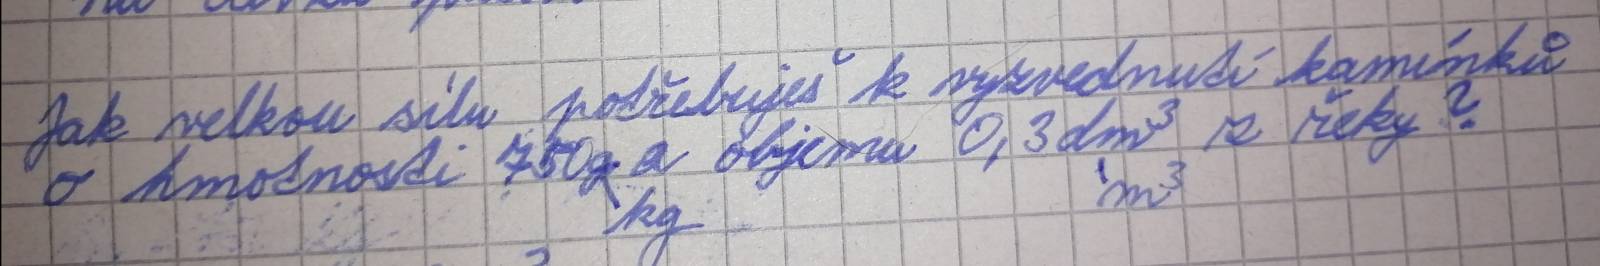 Jak velkou sílu potřebuješ k vyzvednutí kamínků
o hmotnosti 750g a objemu 0,3dm³ z řeky?
kg m³